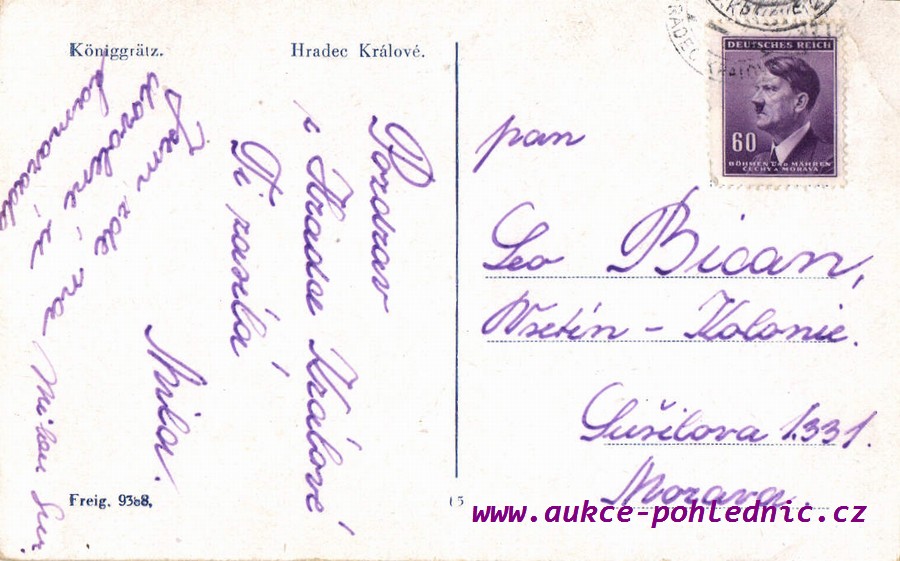 Königgrätz.
Hradec Králové.
DEUTSCHES REICH
60
BÖHMEN U. MÄHREN
ČECHY A MORAVA
Pozdrav
z Hradce Králové
Ti zasílá
Míla.
Jsem zde na
dovolené u
kamaráda
Milan
pan
Leo Bican,
Vsetín - Kolonie.
Sušilova 1331.
Morava.
Freig. 9388,
15
www.aukce-pohlednic.cz